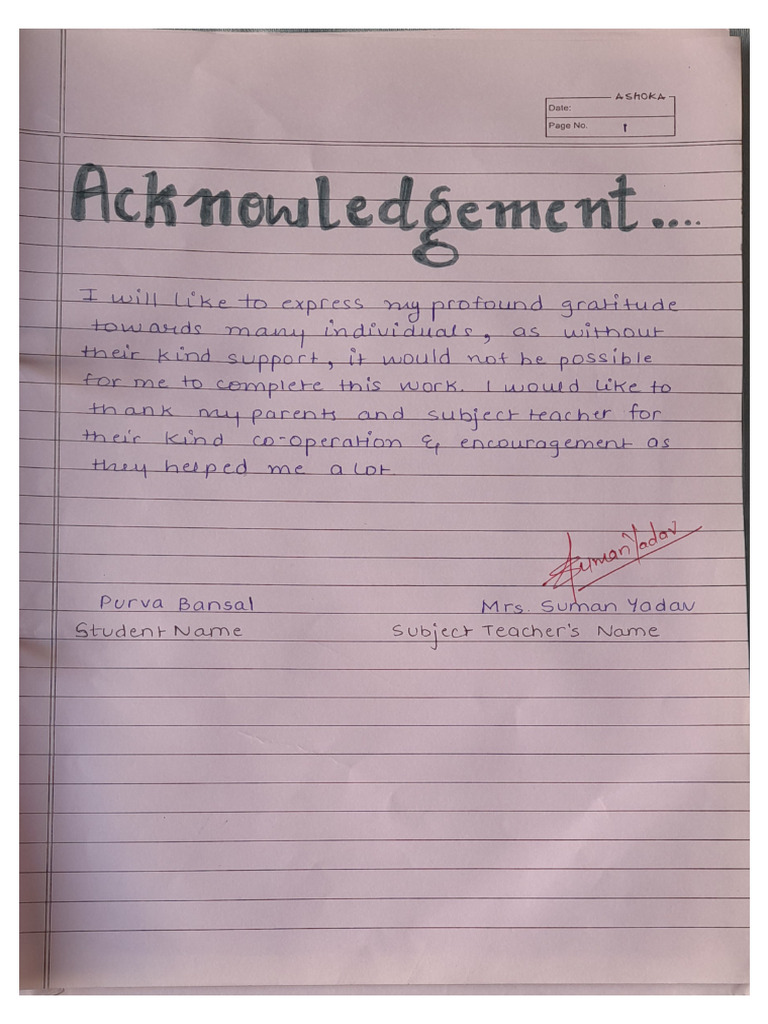 ASHOKA
Date:
Page No. 1
Acknowledgement....
I will like to express my profound gratitude
towards many individuals, as without
their kind support, it would not be possible
for me to complete this work. I would like to
thank my parents and subject teacher for
their kind co-operation & encouragement as
they helped me a lot
Suman Yadav
Purva Bansal Mrs. Suman Yadav
Student Name Subject Teacher's Name